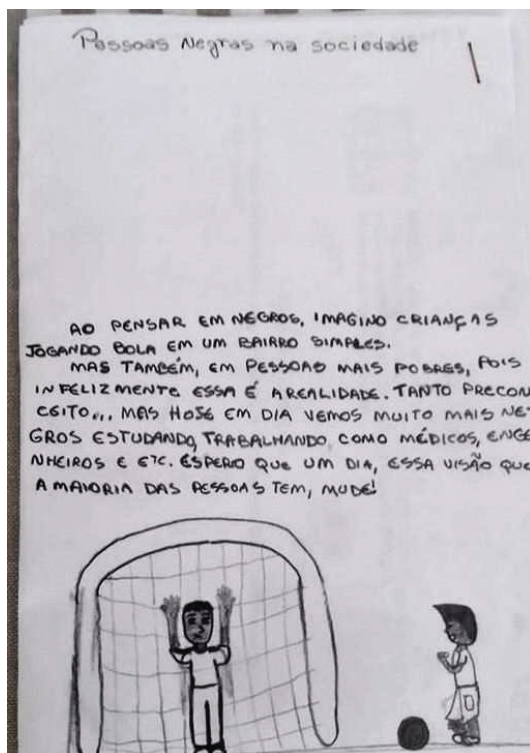 Pessoas Negras na sociedade
AO PENSAR EM NEGROS, IMAGINO CRIANÇAS
JOGANDO BOLA EM UM BAIRRO SIMPLES.
MAS TAMBÉM, EM PESSOAS MAIS POBRES, POIS
INFELIZMENTE ESSA É A REALIDADE. TANTO PRECON
CEITO... MAS HOJE EM DIA VEMOS MUITO MAIS NE-
GROS ESTUDANDO, TRABALHANDO, COMO MÉDICOS, ENGE
NHEIROS E ETC. ESPERO QUE UM DIA, ESSA VISÃO QUE
A MAIORIA DAS PESSOAS TEM, MUDE!